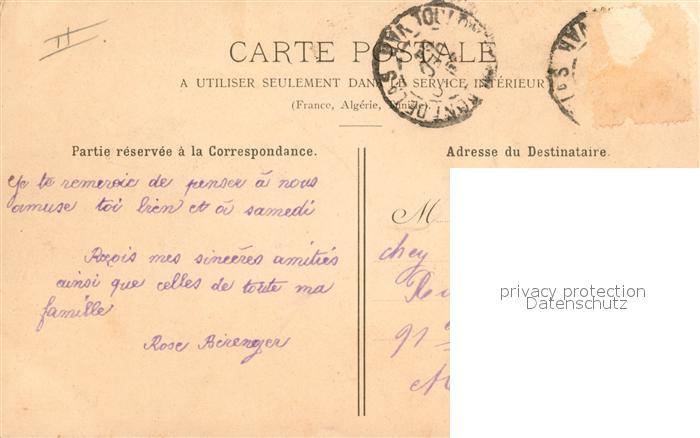 CARTE POSTALE
A UTILISER SEULEMENT DANS LE SERVICE INTÉRIEUR
(France, Algérie, Tunisie).
Partie réservée à la Correspondance.
Je te remercie de penser à nous
amuse toi bien et à samedi
Reçois mes sincères amitiés
ainsi que celles de toute ma
famille
Rose Bérenger
Adresse du Destinataire.
M
chez
91
privacy protection
Datenschutz